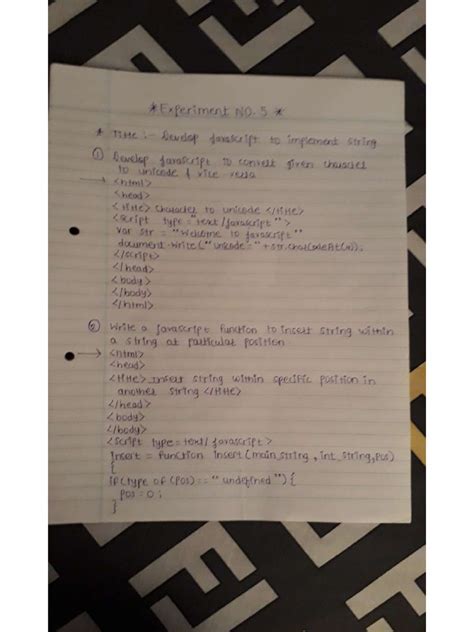 * Experiment NO. 5 *
* Title :- Develop JavaScript to implement string
① Develop JavaScript to convert given character
to unicode & vice-versa
→ <html>
<head>
<title> Character to unicode </title>
<script type="text/javascript">
var str = "Welcome to javascript"
document.write("unicode="+str.charCodeAt(0));
</script>
</head>
<body>
</body>
</html>
② Write a javascript function to insert string within
a string at particular position
→ <html>
<head>
<title> insert string within specific position in
another string </title>
</head>
<body>
</body>
<script type=text/javascript>
Insert = function insert(main_string, int_string, pos)
{
if(type of (pos) == "undefined") {
pos = 0;
}